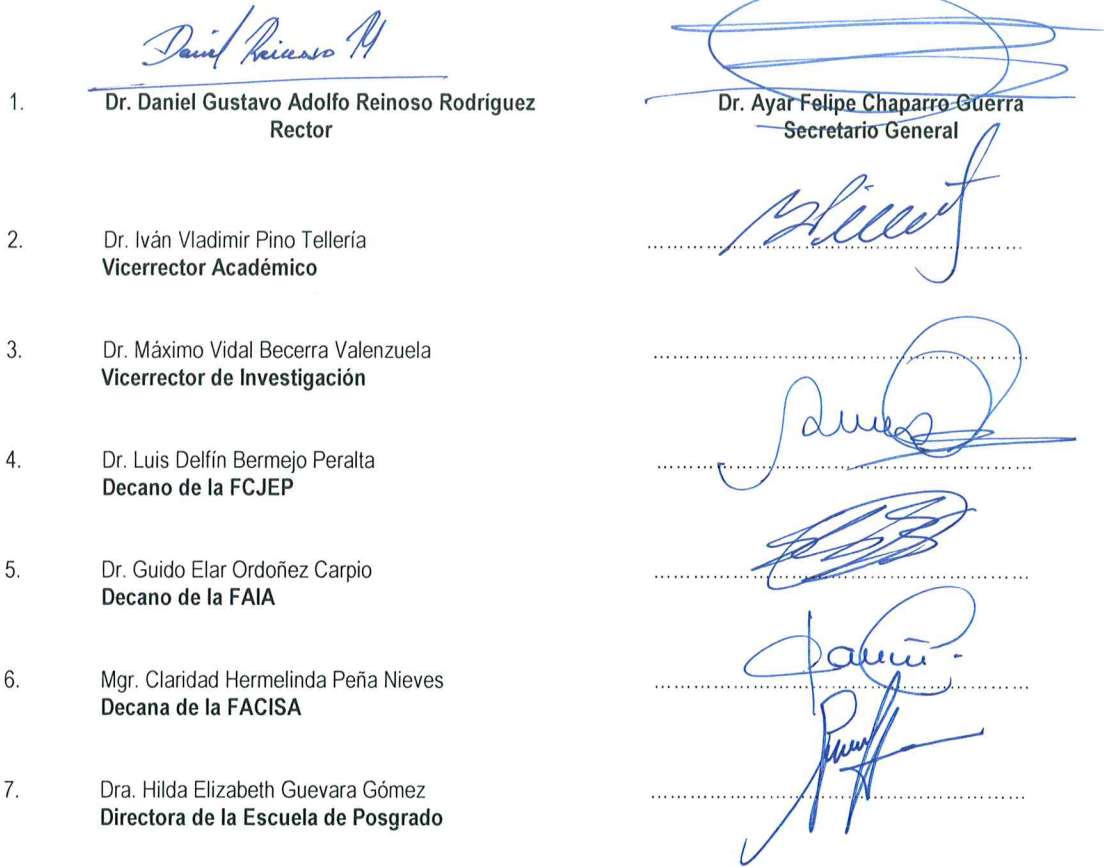 Daniel Reinoso
1. Dr. Daniel Gustavo Adolfo Reinoso Rodríguez Dr. Ayar Felipe Chaparro Guerra
Rector Secretario General
2. Dr. Iván Vladimir Pino Tellería
Vicerrector Académico
3. Dr. Máximo Vidal Becerra Valenzuela
Vicerrector de Investigación
4. Dr. Luis Delfín Bermejo Peralta
Decano de la FCJEP
5. Dr. Guido Elar Ordoñez Carpio
Decano de la FAIA
6. Mgr. Claridad Hermelinda Peña Nieves
Decana de la FACISA
7. Dra. Hilda Elizabeth Guevara Gómez
Directora de la Escuela de Posgrado